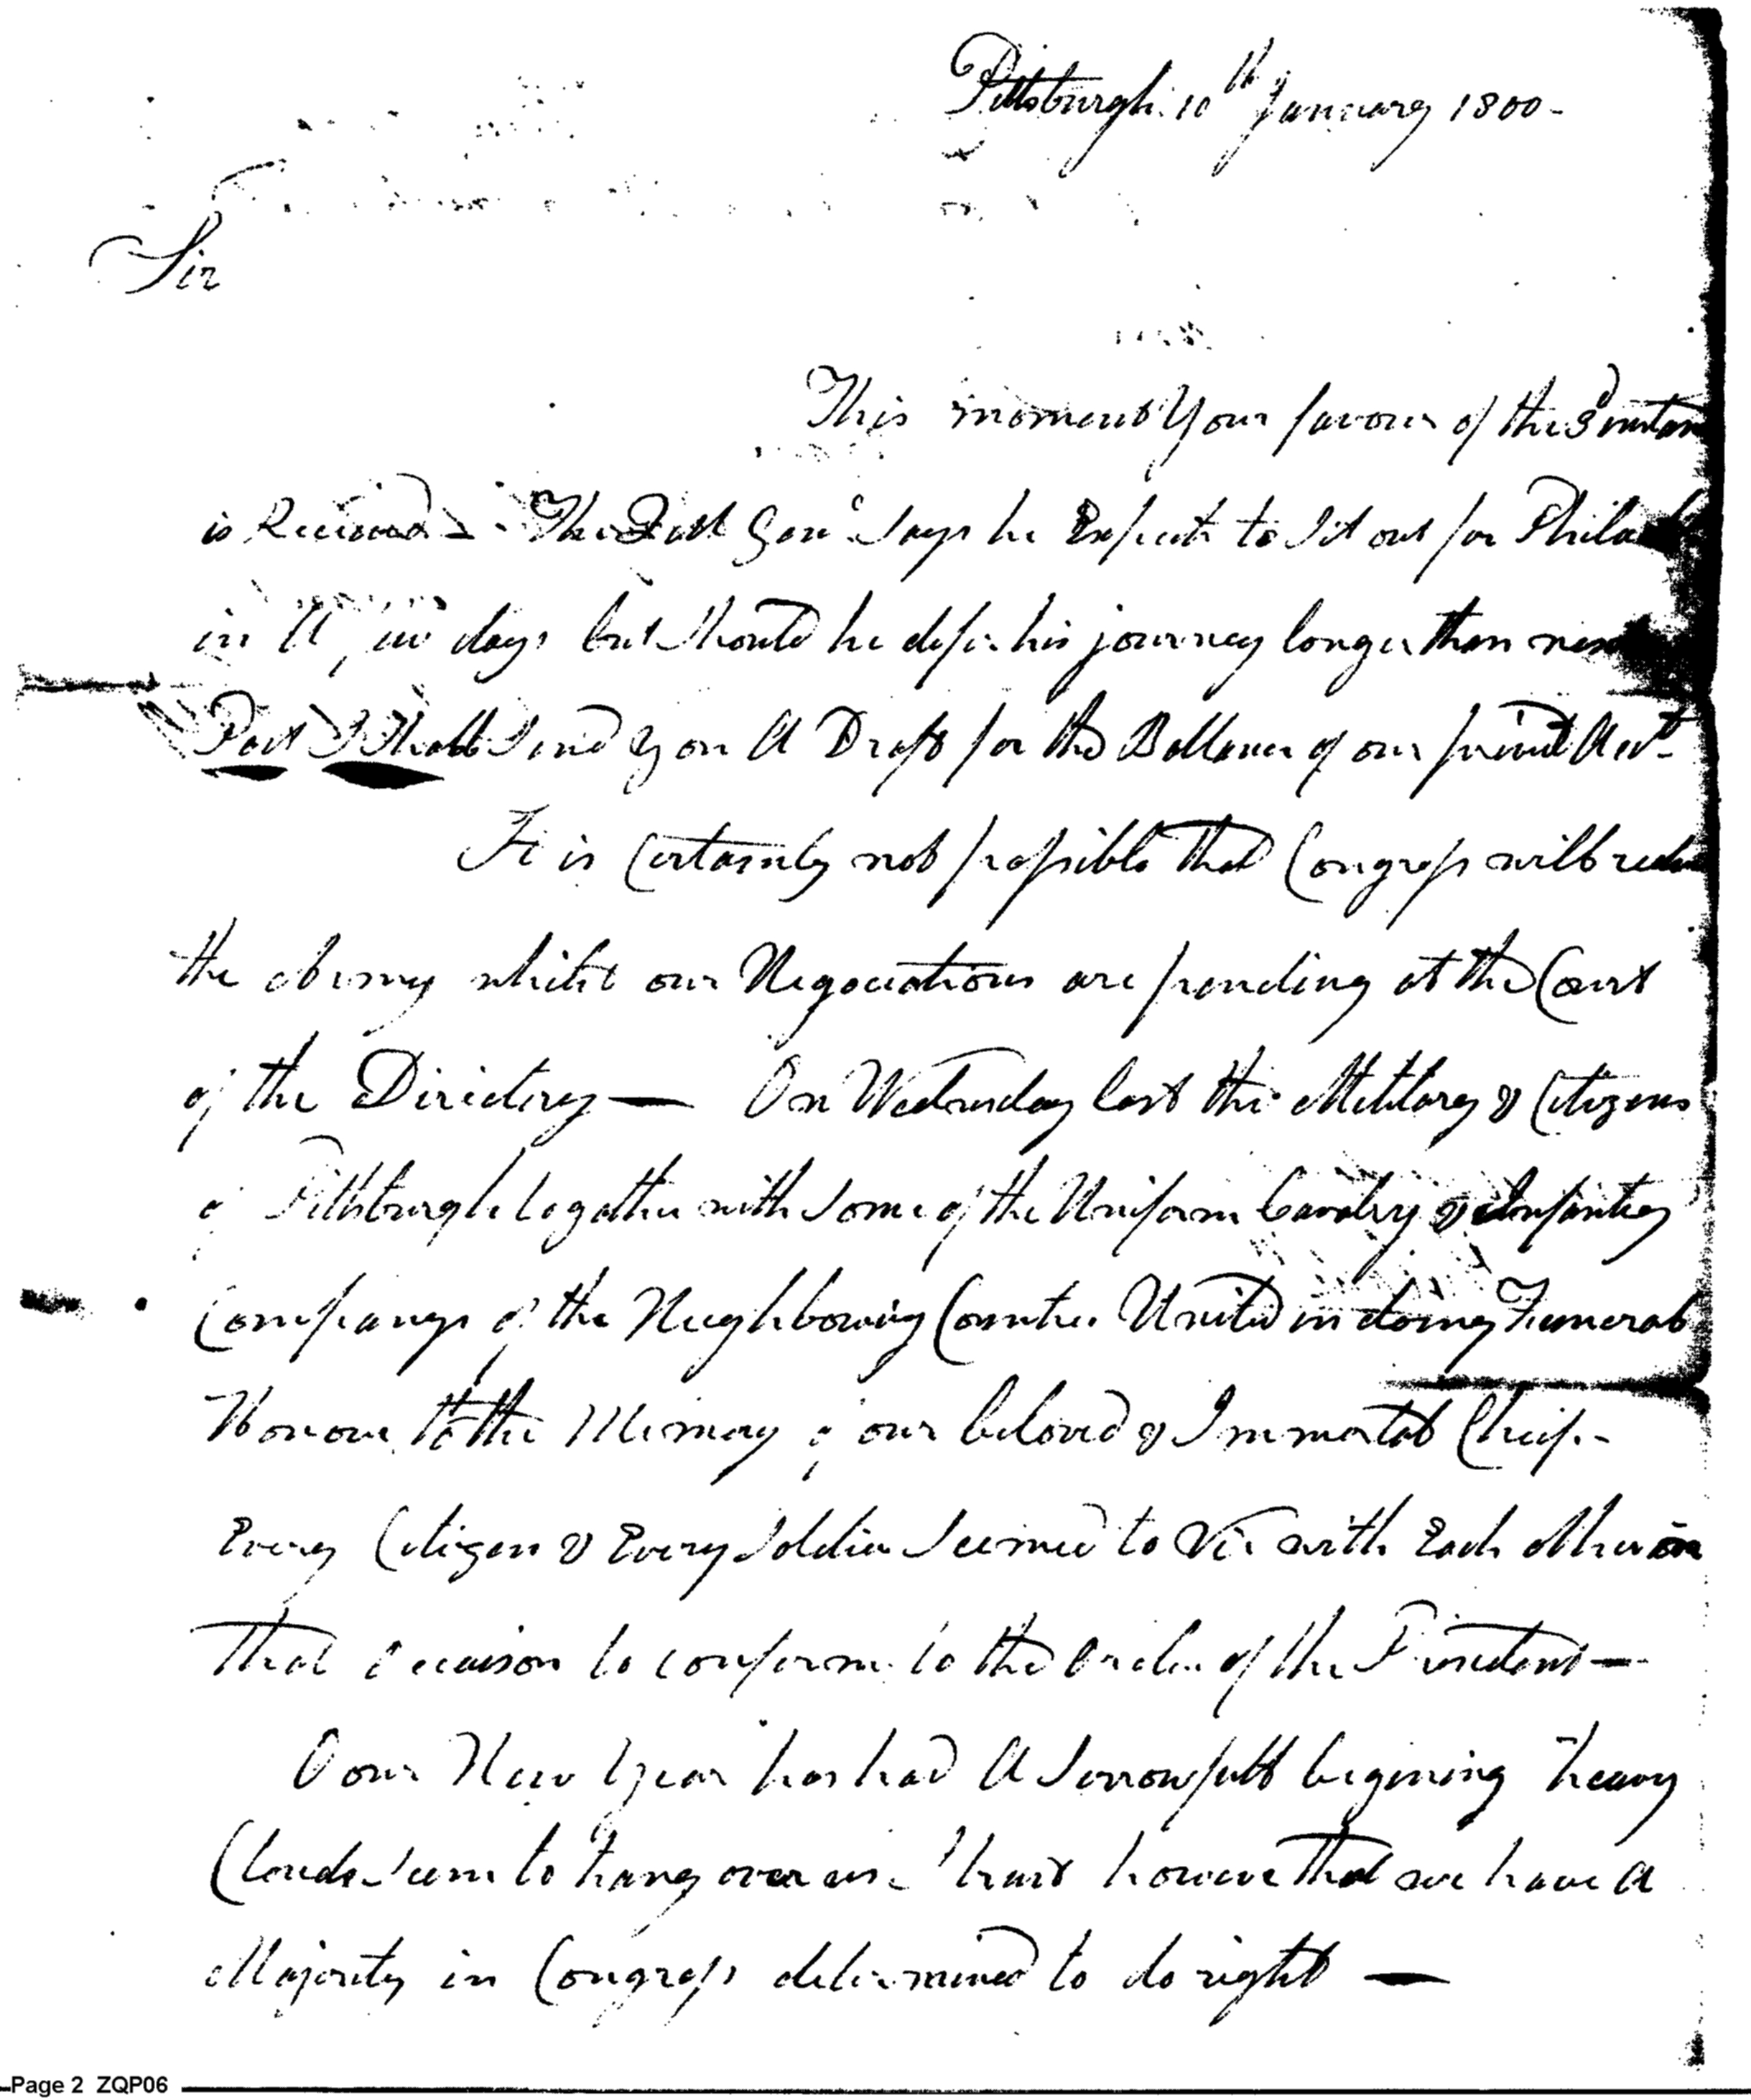 Pittsburgh 10th January 1800-
Sir
This moment Your favour of the 3d instan
is Received - The Qull Genl Says he Expects to Set out for Philad
in A few days but Should he defer his journey longer than next
Post I Shall Send you A Draft for the Ballance of our private Acct-
It is Certainly not possible that Congress will redu
the Army whilst our Negociations are pending at the Court
of the Directory — On Wednesday last the Military & Citizens
of Pittsburgh together with Some of the Uniform Cavalry & Infantry
Companys of the Neighbouring Counties United in doing Funeral
Honours to the Memory of our beloved & Immortal Chief.-
Every Citizen & Every Soldier Seemed to Vie with Each other on
that Occaison to conform to the Orders of the President —
Our New Year has had A Sorrowfull begining heavy
Clouds Seem to hang over us - I trust however that we have A
Majority in Congress determined to do right —
Page 2 ZQP06